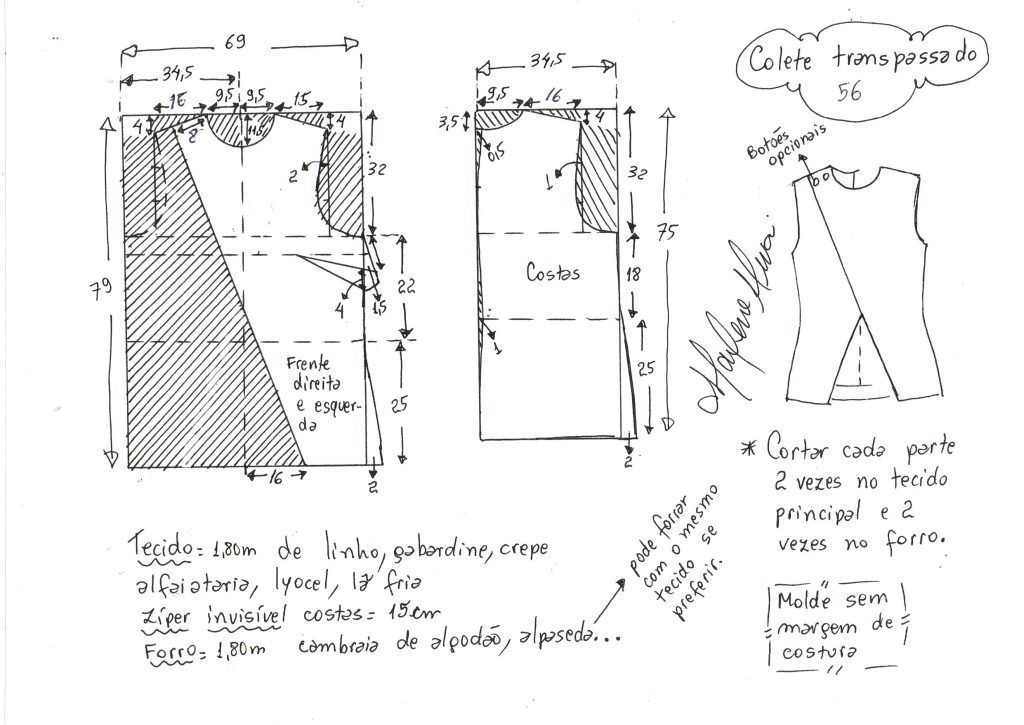 Colete transpassado
56
Botões
opcionais
69
34,5
16
9,5
9,5
15
4
8
11,5
4
2
32
79
22
4
1,5
Frente
direita
e esquer-
da
25
16
2
34,5
9,5
16
3,5
0,5
4
1
32
75
Costas
18
1
25
2
* Cortar cada parte
2 vezes no tecido
principal e 2
vezes no forro.
Molde sem
margem de
costura
Tecido = 1,80m de linho, gabardine, crepe
alfaiataria, lyocel, lã fria
Zíper invisível costas = 15cm
Forro = 1,80m cambraia de algodão, alpaseda...
pode forrar
com o mesmo
tecido se
preferir.